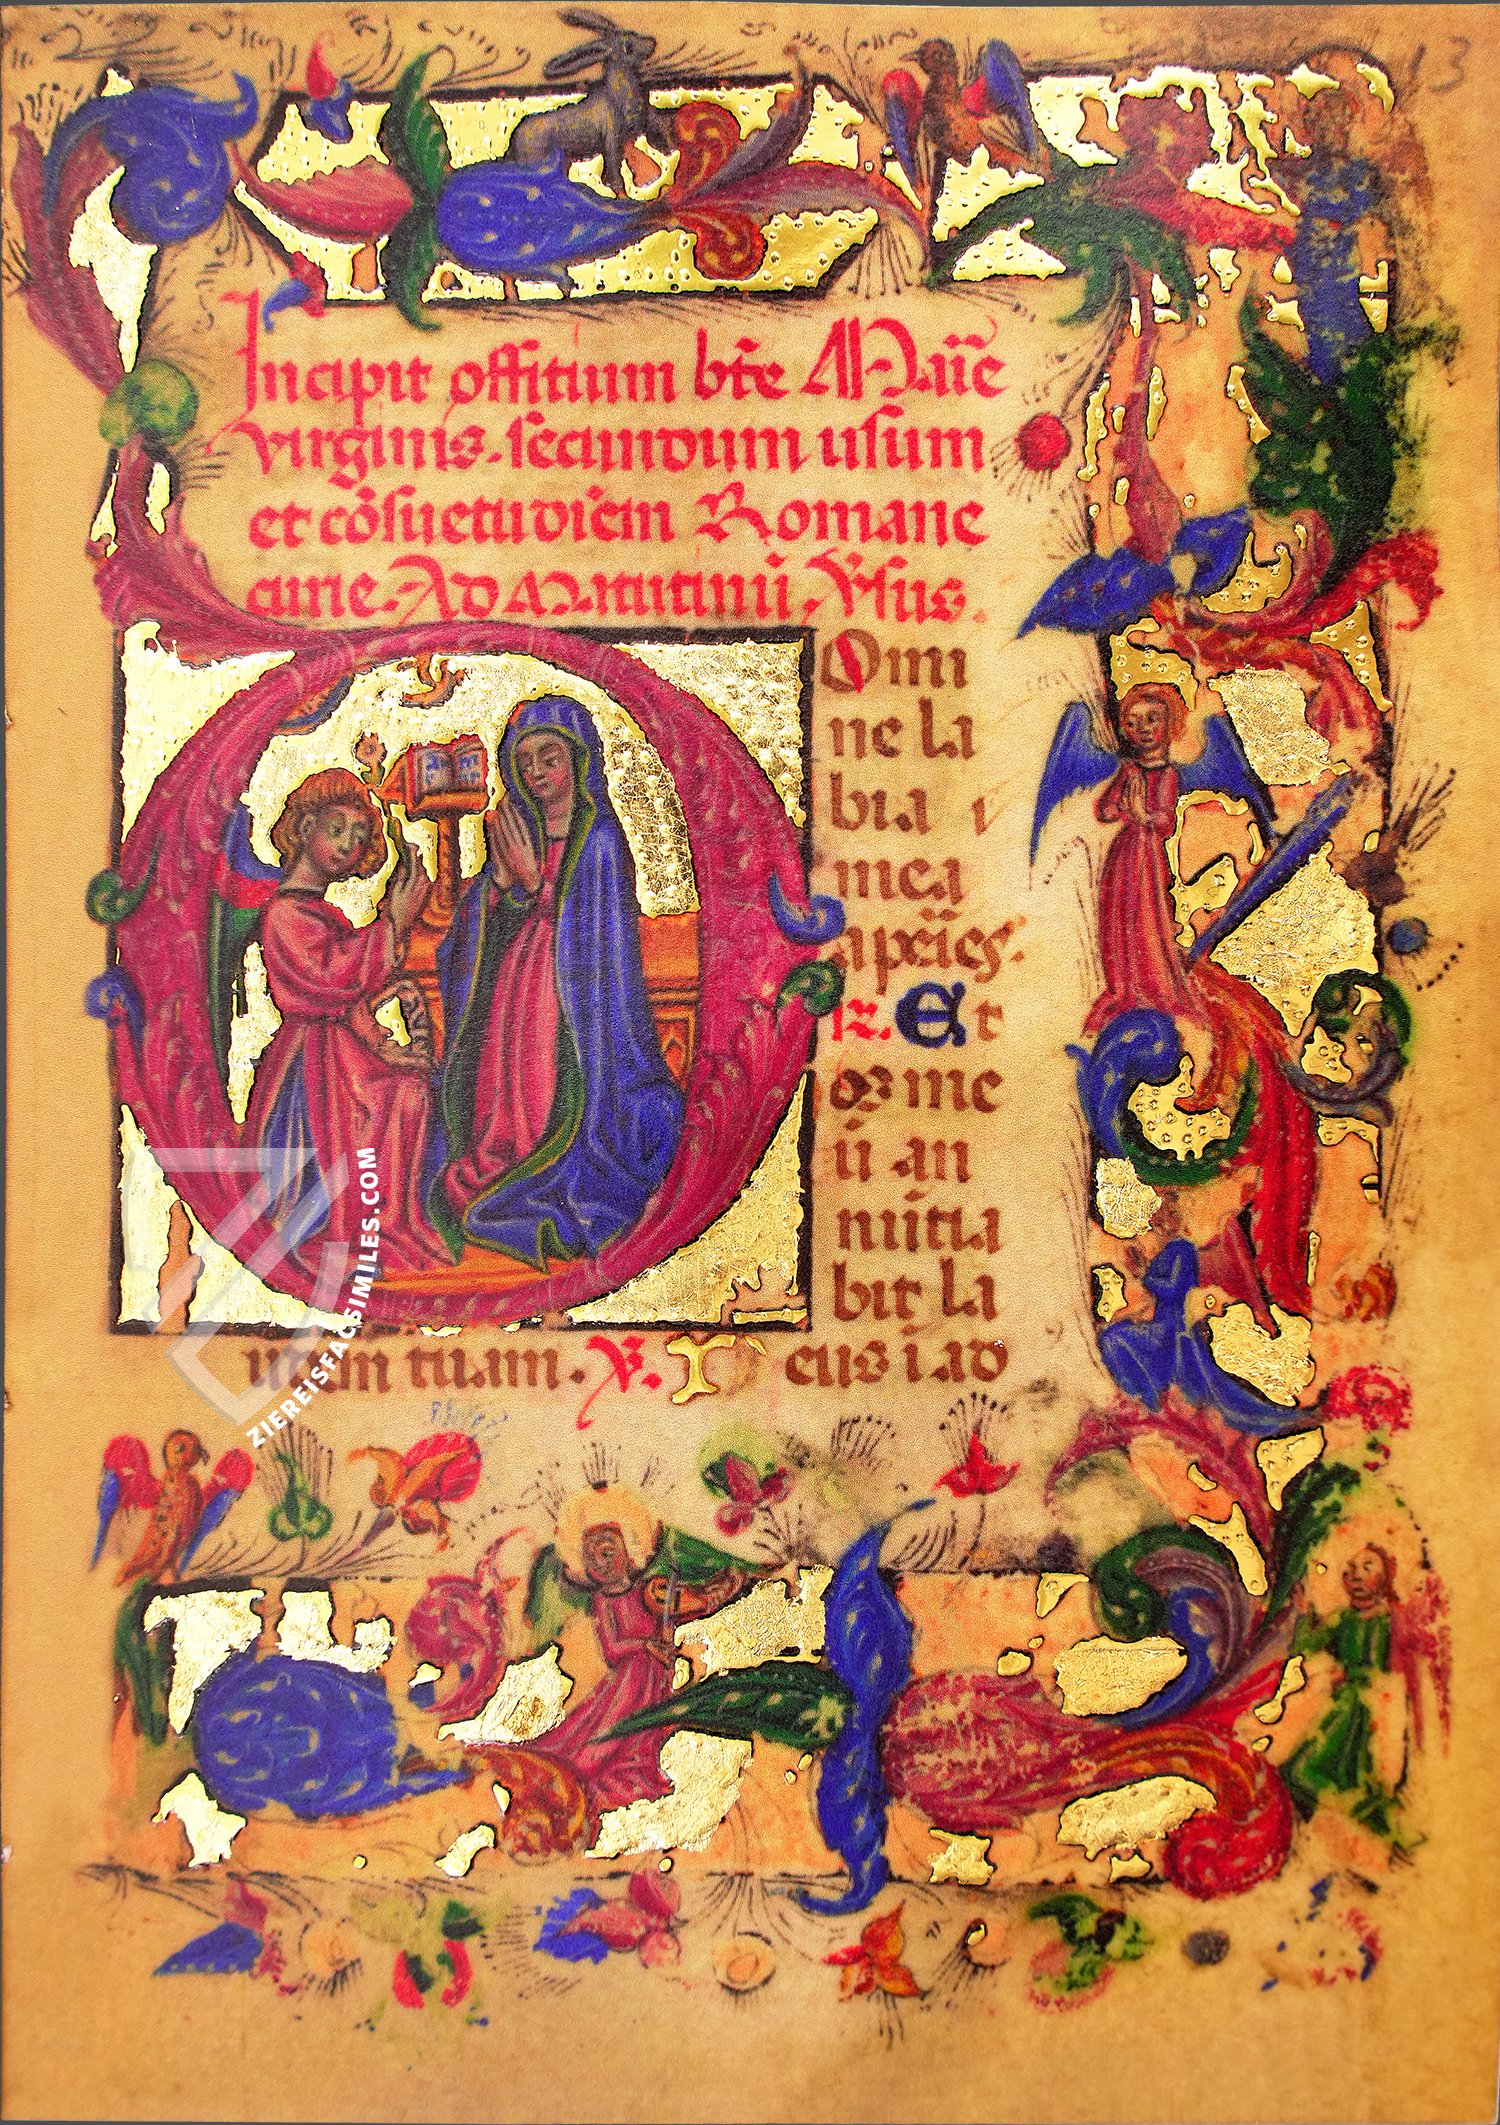 13
Incipit offitium bt̄e Maīe
virginis. secundum usum
et cōsuetudiēm Romane
curie. Ad Matutinū. V̄sus.
Domi
ne la
bia
mea
apēies.
R. Et
os me
ū an
nūtia
bit la
udem tuam. V. D eus i ad
ZIEREISFACSIMILES.COM